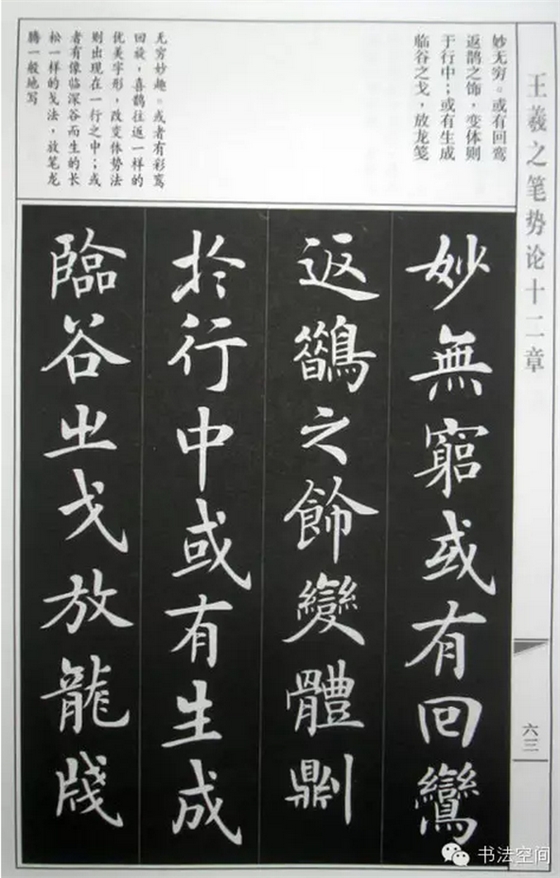 王羲之笔势论十二章
六三
妙无穷。或有回鸾
返鹊之饰，变体则
于行中；或有生成
临谷之戈，放龙笺
无穷妙趣。或者有彩鸾
回旋，喜鹊往返一样的
优美字形，改变体势法
则出现在一行之中；或
者有像临深谷而生的长
松一样的戈法，放笔龙
腾一般地写
妙無窮或有回鸞
返鵲之飾變體則
於行中或有生成
臨谷之戈放龍牋
书法空间